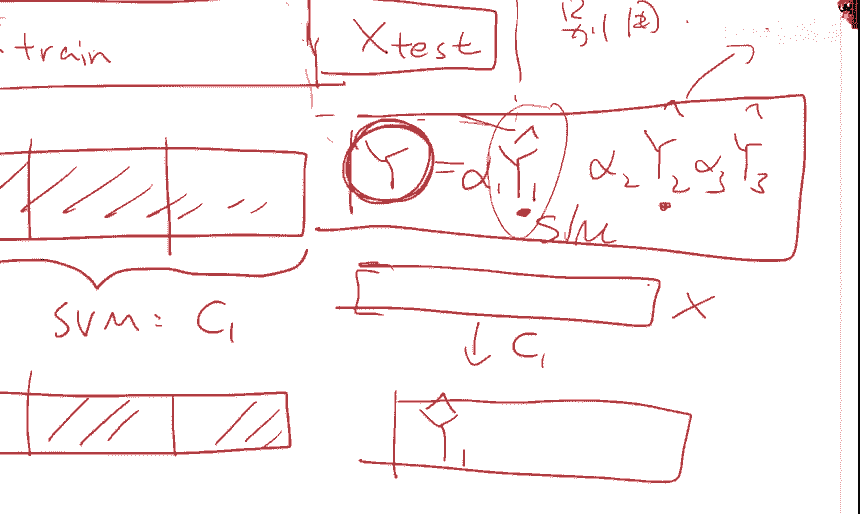 train
Xtest
Y = α₁Ŷ₁ α₂Ŷ₂ α₃Ŷ₃
SVM
X
SVM: C₁
↓ C₁
Ŷ₁